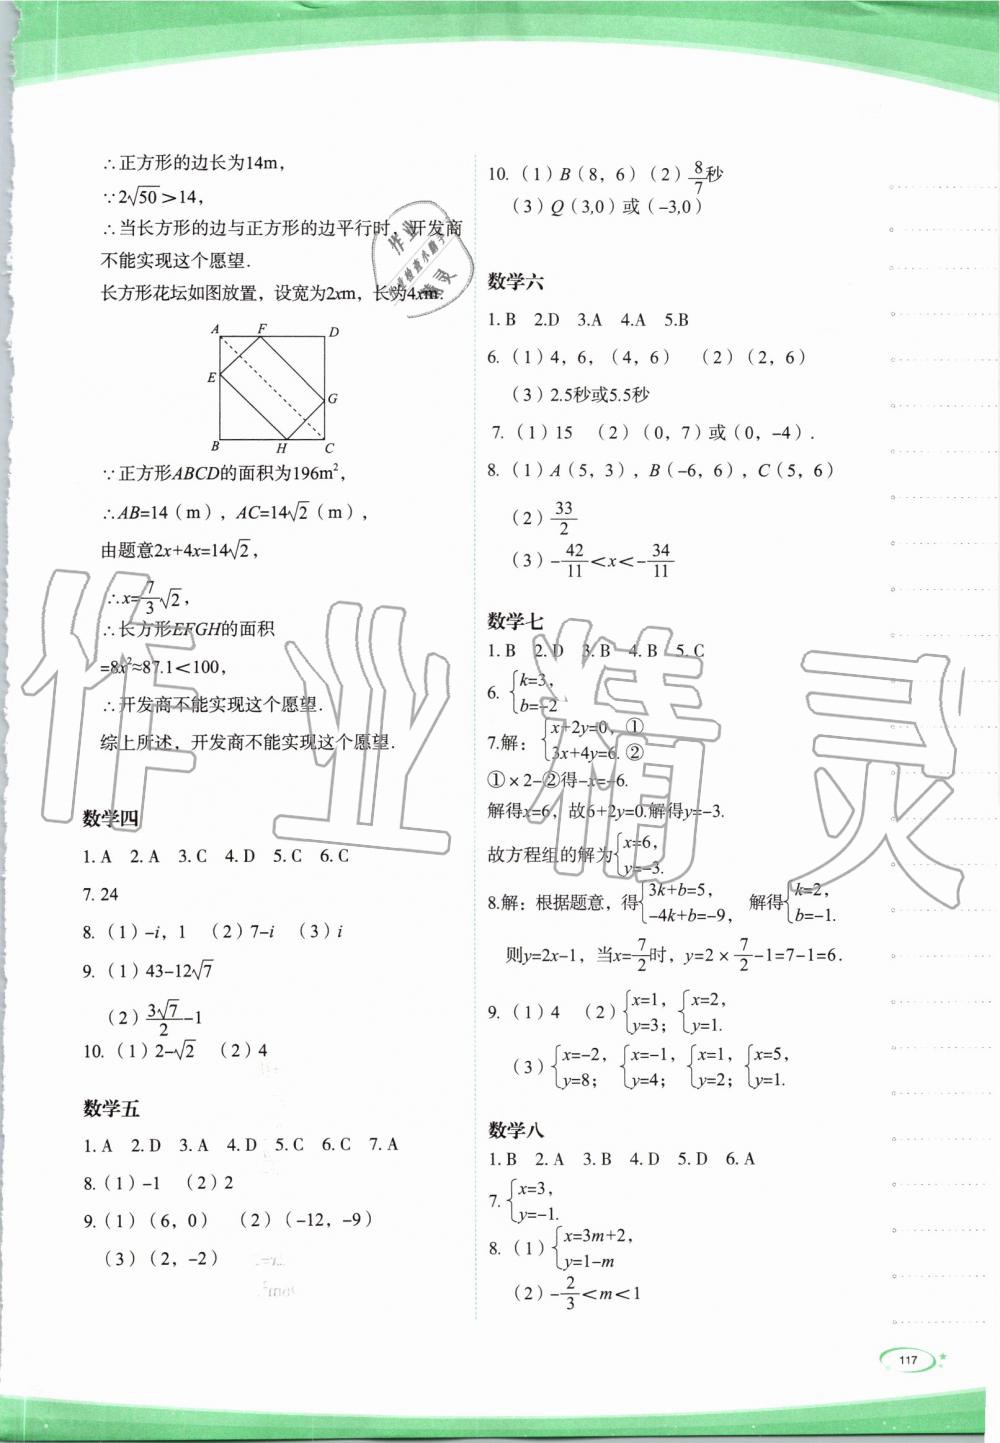 ∴正方形的边长为14m，
∵2√50＞14，
∴当长方形的边与正方形的边平行时，开发商
不能实现这个愿望．
长方形花坛如图放置，设宽为2xm，长为4xm．
A F D
E
G
B H C
∵正方形ABCD的面积为196m²，
∴AB=14（m），AC=14√2（m），
由题意2x+4x=14√2，
∴x=7/3√2，
∴长方形EFGH的面积
=8x²≈87.1＜100，
∴开发商不能实现这个愿望．
综上所述，开发商不能实现这个愿望．
数学四
1. A 2. A 3. C 4. D 5. C 6. C
7. 24
8.（1）-i，1 （2）7-i （3）i
9.（1）43-12√7
（2）3√7/2-1
10.（1）2-√2 （2）4
数学五
1. A 2. D 3. A 4. D 5. C 6. C 7. A
8.（1）-1 （2）2
9.（1）（6，0） （2）（-12，-9）
（3）（2，-2）
10.（1）B（8，6）（2）8/7秒
（3）Q（3,0）或（-3,0）
数学六
1. B 2.D 3.A 4.A 5.B
6.（1）4，6，（4，6） （2）（2，6）
（3）2.5秒或5.5秒
7.（1）15 （2）（0，7）或（0，-4）.
8.（1）A（5，3），B（-6，6），C（5，6）
（2）33/2
（3）-42/11＜x＜-34/11
数学七
1. B 2. D 3. B 4. B 5. C
6. {k=3，
b=-2
7.解：{x+2y=0，①
3x+4y=6. ②
①×2-②得-x=-6.
解得x=6，故6+2y=0.解得y=-3.
故方程组的解为{x=6，
y=-3.
8.解：根据题意，得{3k+b=5， 解得{k=2，
-4k+b=-9， b=-1.
则y=2x-1，当x=7/2时，y=2×7/2-1=7-1=6.
9.（1）4 （2）{x=1， {x=2，
y=3； y=1.
（3）{x=-2， {x=-1， {x=1， {x=5，
y=8； y=4； y=2； y=1.
数学八
1. B 2. A 3. B 4. D 5. D 6. A
7. {x=3，
y=-1.
8.（1）{x=3m+2，
y=1-m
（2）-2/3＜m＜1
117
作业精灵